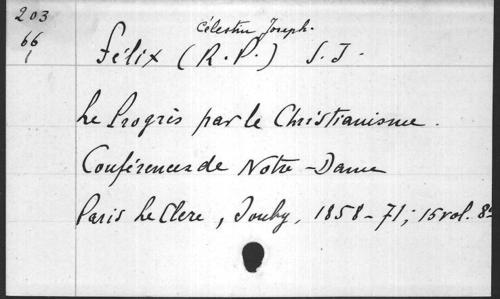 203
66
1
Célestin Joseph.
Félix (R.P.) S.J.
Le Progrès par le Christianisme.
Conférences de Notre-Dame
Paris Le Clere, Jouby, 1858-71; 15 vol. 8º